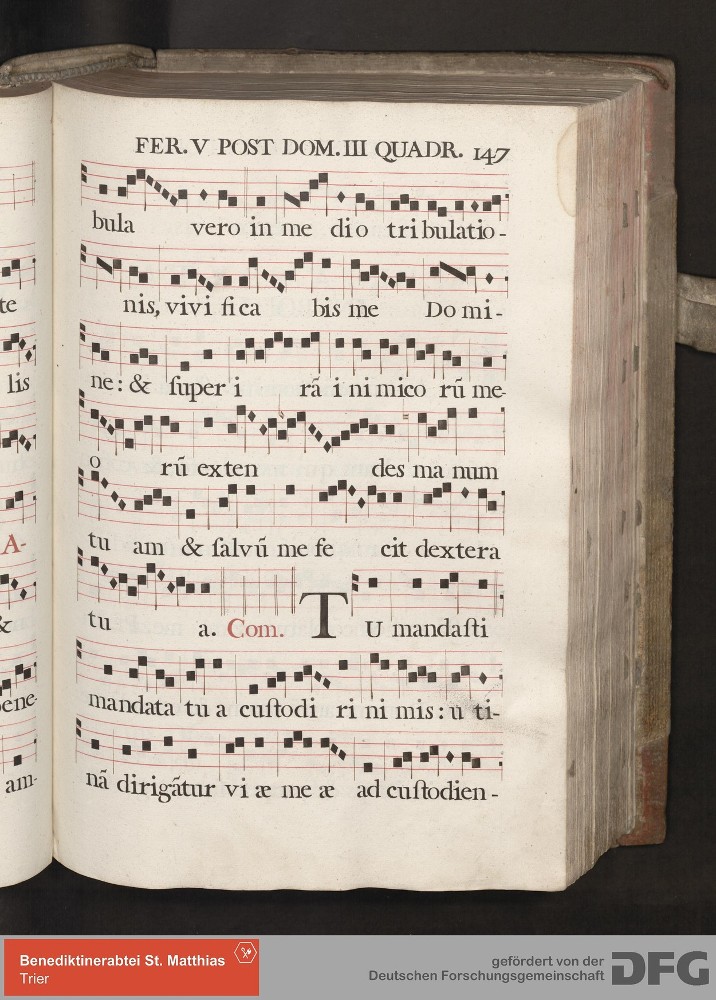 te
lis
A-
&
bene-
am-
FER. V POST DOM. III QUADR. 147
bula vero in me dio tribulatio-
nis, vivi fica bis me Domi-
ne: & ſuper i rã i ni mico rũ me-
o rũ exten des ma num
tu am & ſalvũ me fe cit dextera
tu a. Com. TU mandaſti
mandata tu a cuſtodi ri ni mis: u ti-
nã dirigãtur vi æ me æ ad cuſtodien-
Benediktinerabtei St. Matthias
Trier
gefördert von der
Deutschen Forschungsgemeinschaft
DFG